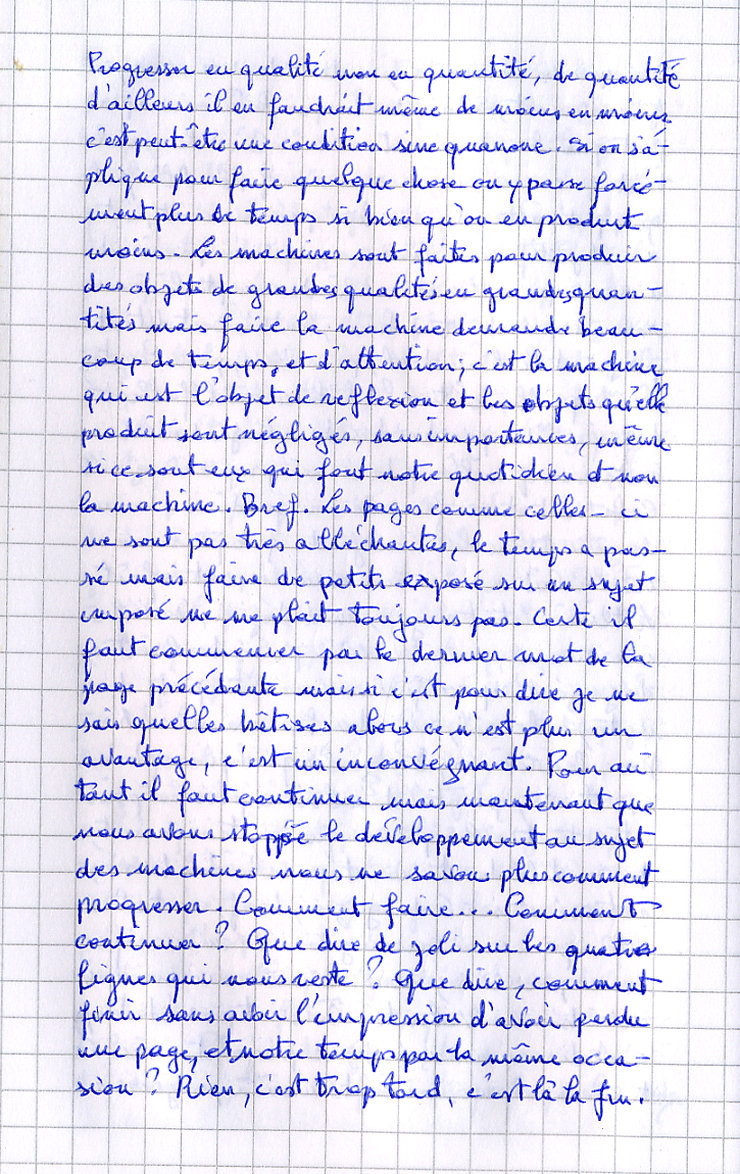 Progresser en qualité non en quantité, de quantité
d'ailleurs il en faudrait même de moins en moins
c'est peut-être une condition sine quanone. Si on s'a-
plique pour faire quelque chose on y passe forcé-
ment plus de temps si bien qu'on en produit
moins. Les machines sont faites pour produire
des objets de grandes qualités en grandes quan-
tités mais faire la machine demande beau-
coup de temps, et d'attention; c'est la machine
qui est l'objet de reflexion et les objets qu'elle
produit sont négligés, sans importances, même
si ce sont eux qui font notre quotidien et non
la machine. Bref. Les pages comme celles-ci
ne sont pas très alléchantes, le temps a pas-
sé mais faire de petits exposé sur un sujet
imposé ne me plait toujours pas. Certe il
faut commencer par le dernier mot de la
page précédante mais si c'est pour dire je ne
sais quelles bêtises alors ce n'est plus un
avantage, c'est un inconvégnant. Pour au
tant il faut continuer mais maintenant que
nous avons stoppé le développement au sujet
des machines nous ne savons plus comment
progresser. Comment faire... Comment
continuer? Que dire de joli sur les quatres
lignes qui nous reste? Que dire, comment
finir sans avoir l'impression d'avoir perdu
une page, et notre temps par la même occa-
sion? Rien, c'est trop tard, c'est là la fin.